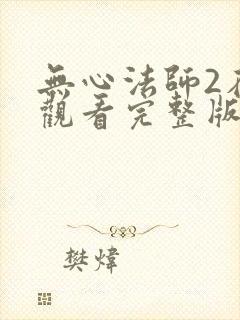 無心法師2在
觀看完整版
樊煒